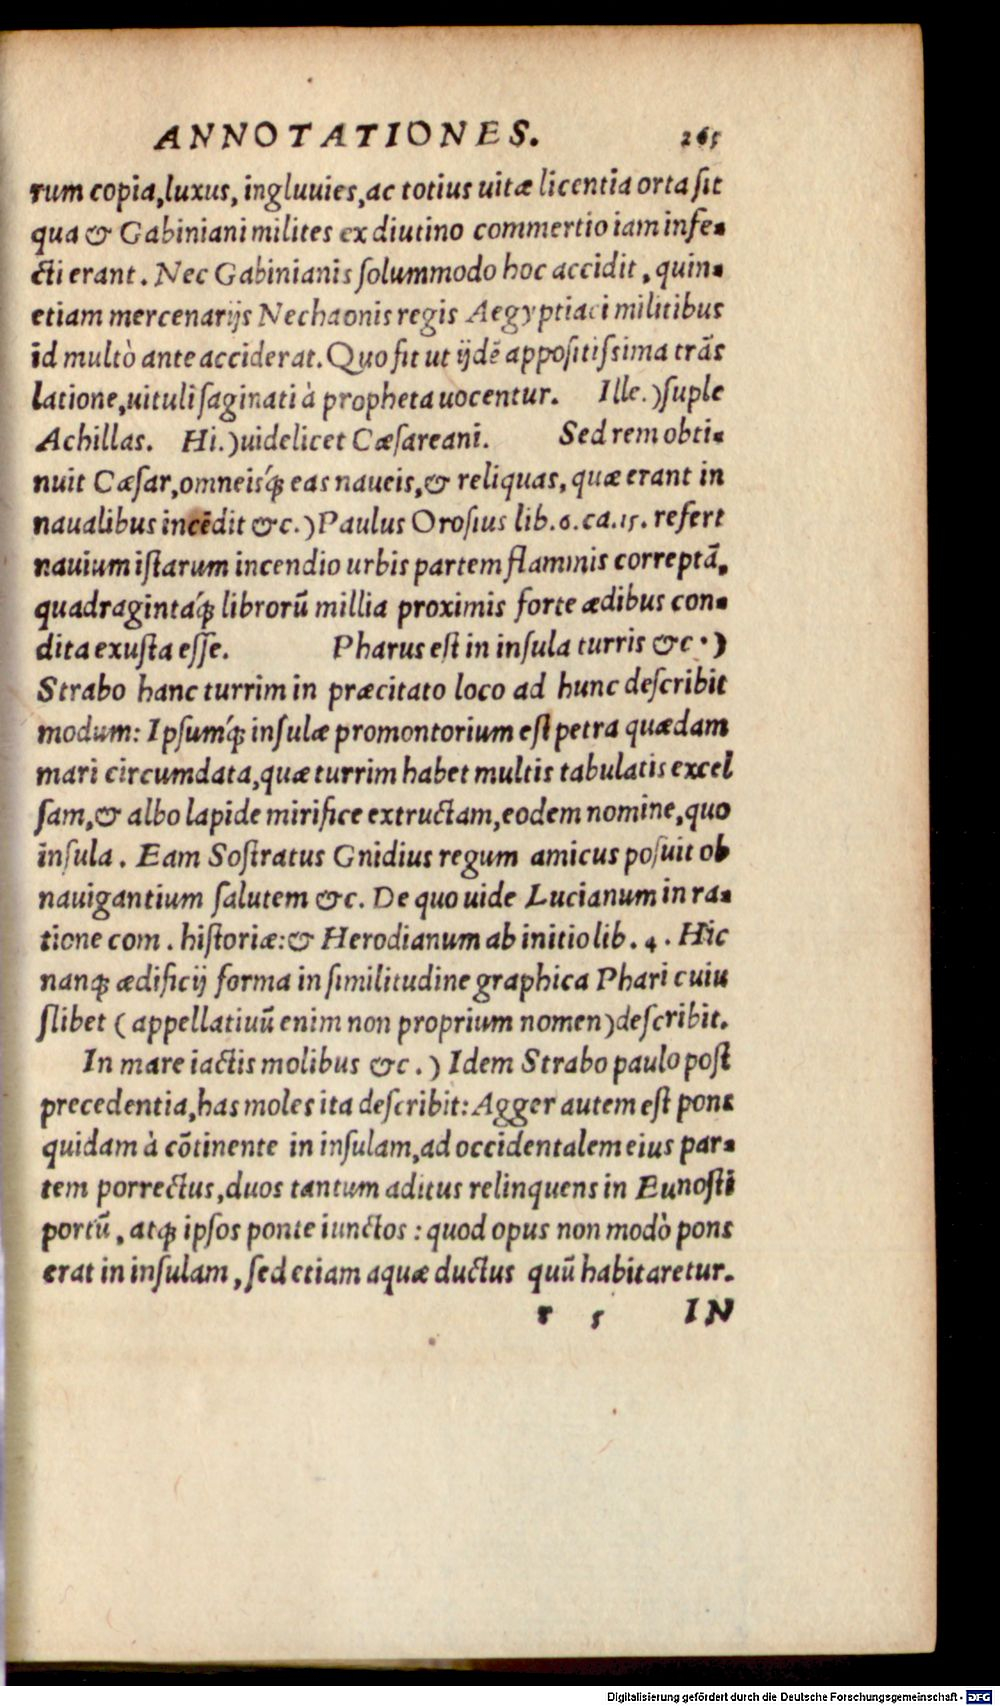 ANNOTATIONES. 265
rum copia, luxus, ingluuies, ac totius uitæ licentia orta sit
qua & Gabiniani milites ex diutino commertio iam infe-
cti erant. Nec Gabinianis solummodo hoc accidit, quin-
etiam mercenarijs Nechaonis regis Aegyptiaci militibus
id multò ante acciderat. Quo fit ut ijdẽ appositissima trãs
latione, uituli saginati à propheta uocentur. Ille.) suple
Achillas. Hi.) uidelicet Cæsareani. Sed rem obti-
nuit Cæsar, omneisq́; eas naueis, & reliquas, quæ erant in
naualibus incẽdit &c.) Paulus Orosius lib.6.ca.15. refert
nauium istarum incendio urbis partem flammis correptã,
quadragintaq́; librorũ millia proximis forte ædibus con-
dita exusta esse. Pharus est in insula turris &c.)
Strabo hanc turrim in præcitato loco ad hunc describit
modum: Ipsumq́; insulæ promontorium est petra quædam
mari circumdata, quæ turrim habet multis tabulatis excel
sam, & albo lapide mirifice extructam, eodem nomine, quo
insula. Eam Sostratus Gnidius regum amicus posuit ob
nauigantium salutem &c. De quo uide Lucianum in ra-
tione com. historiæ: & Herodianum ab initio lib. 4. Hic
nanq; ædificij forma in similitudine graphica Phari cuiu
slibet (appellatiuũ enim non proprium nomen) describit.
In mare iactis molibus &c.) Idem Strabo paulo post
precedentia, has moles ita describit: Agger autem est pons
quidam à cõtinente in insulam, ad occidentalem eius par-
tem porrectus, duos tantum aditus relinquens in Eunosti
portũ, atq; ipsos ponte iunctos: quod opus non modò pons
erat in insulam, sed etiam aquæ ductus quũ habitaretur.
r 5 IN
Digitalisierung gefördert durch die Deutsche Forschungsgemeinschaft - DFG